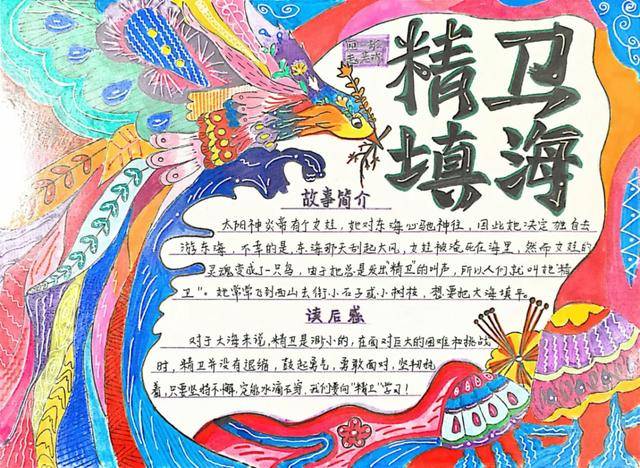 精卫
填海
故事简介
太阳神炎帝有个女娃，她对东海心驰神往，因此她决定独自去
游东海，不幸的是，东海那天刮起大风，女娃被淹死在海里，然而女娃的
灵魂变成了一只鸟，由于她总是发出"精卫"的叫声，所以人们就叫她"精
卫"。她常常飞到西山去衔小石子或小树枝，想要把大海填平。
读后感
对于大海来说，精卫是渺小的，在面对巨大的困难和挑战
时，精卫并没有退缩，鼓起勇气，勇敢面对，坚韧执
着，只要坚持不懈，定能水滴石穿，我们要向"精卫"学习！